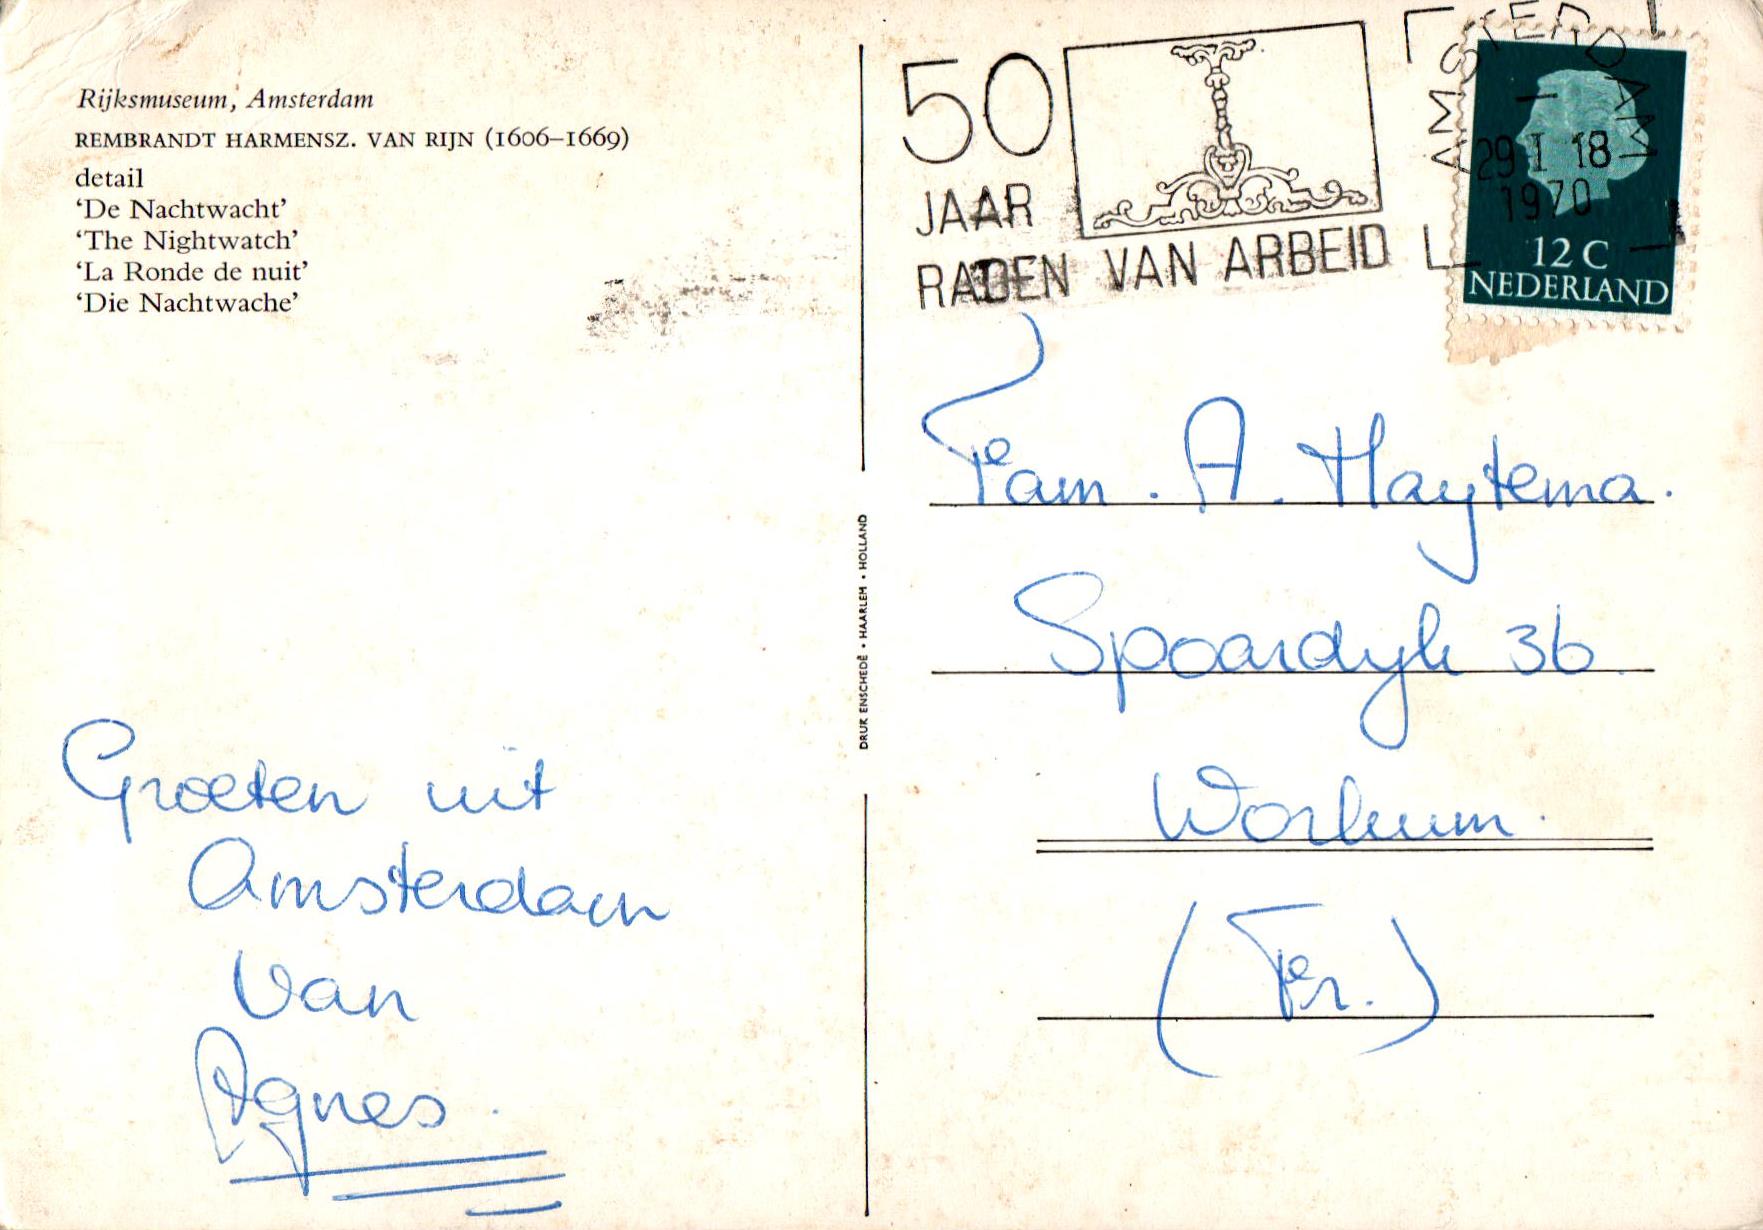 Rijksmuseum, Amsterdam
REMBRANDT HARMENSZ. VAN RIJN (1606–1669)
detail
‘De Nachtwacht’
‘The Nightwatch’
‘La Ronde de nuit’
‘Die Nachtwache’
Groeten uit
Amsterdam
van
Agnes.
DRUK ENSCHEDÉ • HAARLEM • HOLLAND
50
JAAR
RADEN VAN ARBEID
AMSTERDAM
29 I 18
1970
12 C
NEDERLAND
Fam. A. Haytema.
Spoardyk 36
Workum.
(Fr.)